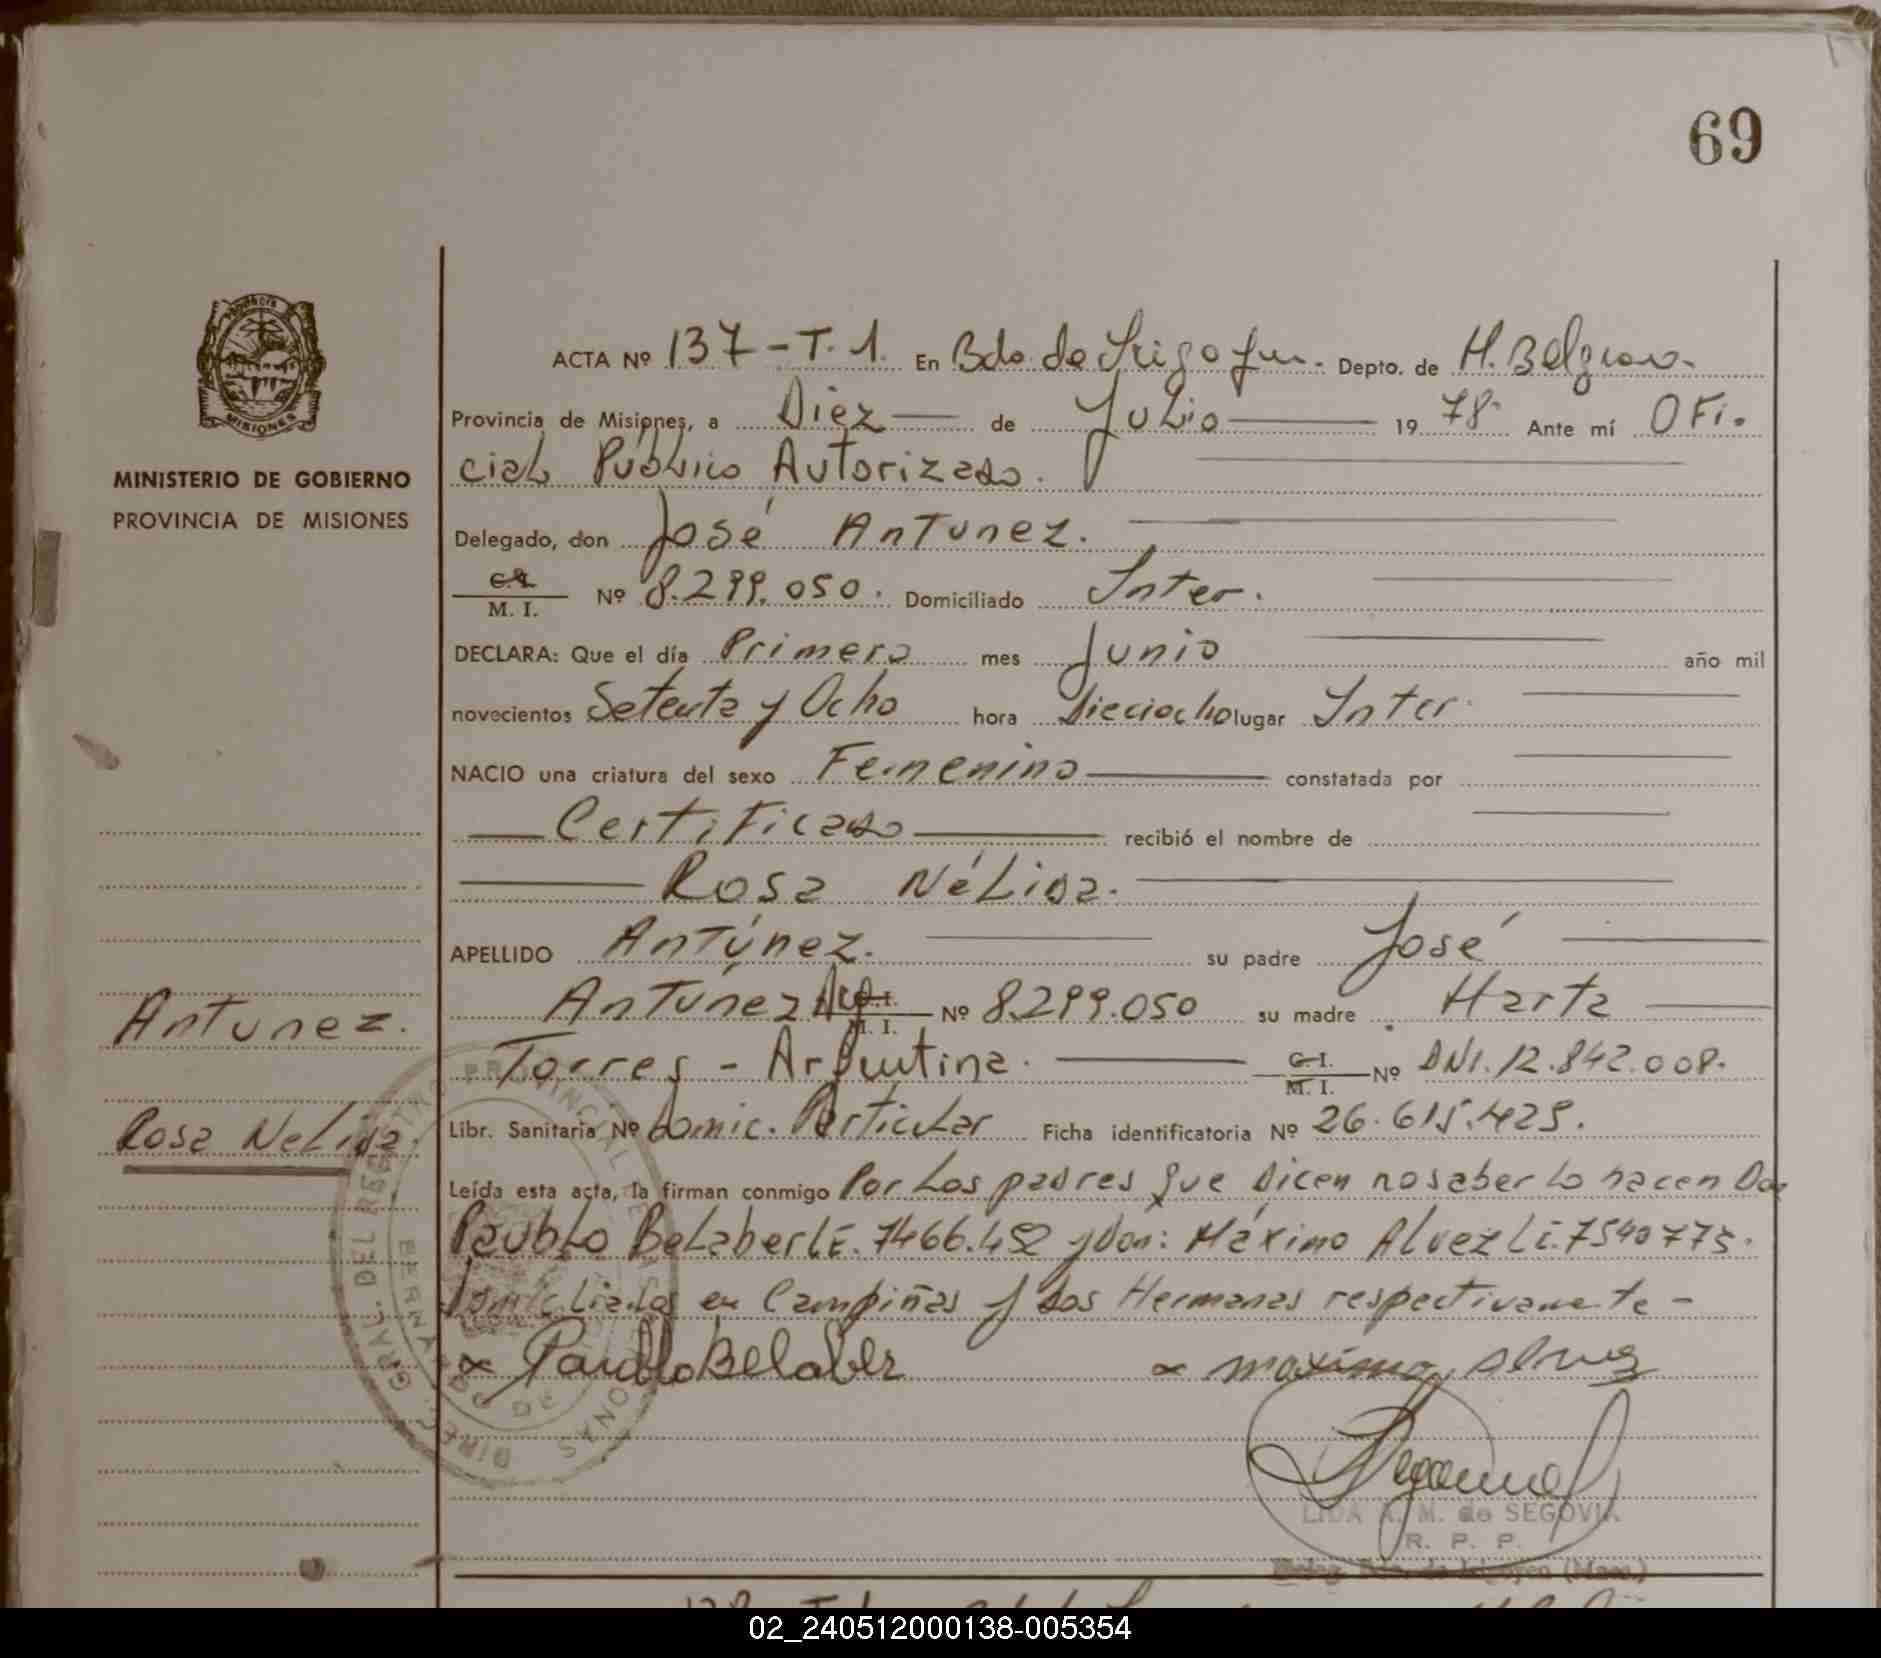 69
PROVINCIA
MISIONES
MINISTERIO DE GOBIERNO
PROVINCIA DE MISIONES
ACTA Nº 137 - T. 1. En Bdo. de Irigoyen. Depto. de M. Belgrano.
Provincia de Misiones, a Diez de Julio 19 78 Ante mí OFi.
ciaL PúbLico Autorizado.
Delegado, don José Antunez.
C.I.
M. I. Nº 8.299.050. Domiciliado Inter.
DECLARA: Que el día Primero mes Junio año mil
novecientos Setenta y Ocho hora Dieciocho lugar Inter.
NACIO una criatura del sexo Femenino constatada por
Certificado recibió el nombre de
Rosa NéLida.
APELLIDO Antúnez. su padre José
Antunez Arg C.I. M. I. Nº 8.299.050 su madre Marta
Torres - Argentina. C.I. M. I. Nº DNI. 12.842.008.
Libr. Sanitaria Nº Domic. Particular Ficha identificatoria Nº 26.615.425.
Leída esta acta, la firman conmigo Por Los padres que dicen no saber Lo hacen Don
PaubLo BeLaber LE. 7466.452 y Don: Máximo Alvez LE. 7540773.
Domiciliados en Campiñas y Dos Hermanas respectivamente -
Antunez.
Rosa NeLida.
DIREC. GRAL. DEL REGISTRO PROVINCIAL DE LAS PERSONAS
BERNARDO DE
PaubloBelaber
maximo, alvez
LIDA A. M. de SEGOVIA
R. P. P.
Deleg. Bdo. de Irigoyen (Mnes.)
02_240512000138-005354